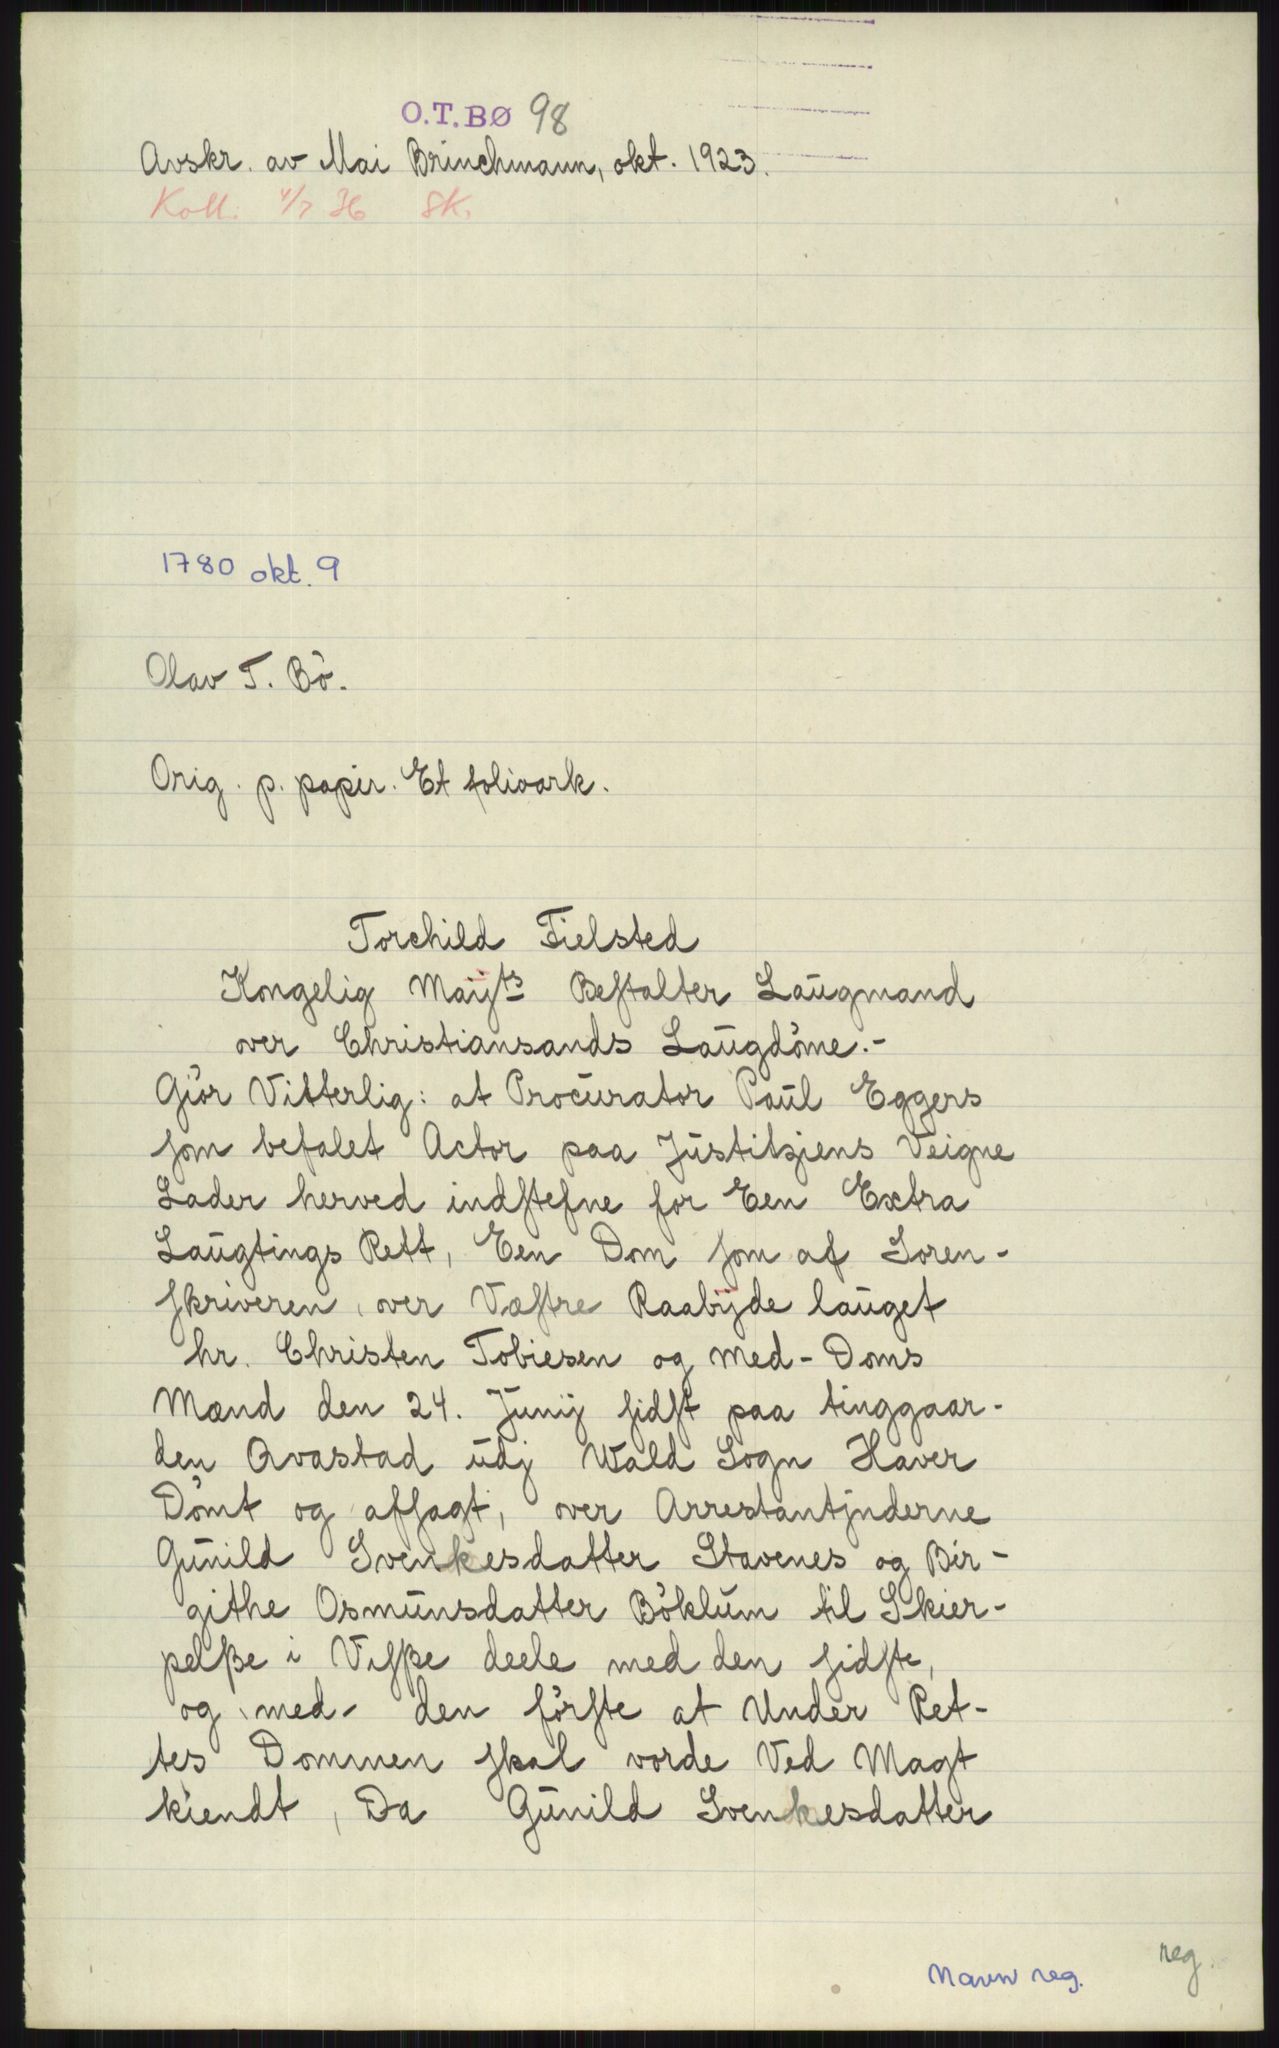 O.T.BØ 98
Avskr. av Mai Brinchmann, okt. 1923.
Koll. 4/7 36 SK.
1780 okt. 9
Olav T. Bö.
Orig. p. papir. Et folioark.
Torchild Fielsted
Kongelig Maÿts Bestalter Laugmand
over Christiansands Laugdöme.-
Giör Vitterlig: at Procurator Paul Eggers
som befalet Actor paa Justitziens Veigne
Lader herved indstefne for Een Extra
Laugtings Rett, Een Dom som af Soren-
skriveren over Væstre Raabÿde lauget
hr. Christen Tobiesen og med-Doms
Mænd den 24. Junij sidst paa tinggaar-
den Avastad udj Wald Sogn Haver
Dömt og afsagt, over Arrestantjnderne
Gunild Svenkesdatter Stavenes og Bir-
githe Osmunsdatter Böklum til Skier-
pelße i Visße deele med den sidste,
og med- den förste at Under Ret-
tes Dommen skal vorde Ved Magt
kiendt, Da Gunild Svenkesdatter
Navn reg.
reg.